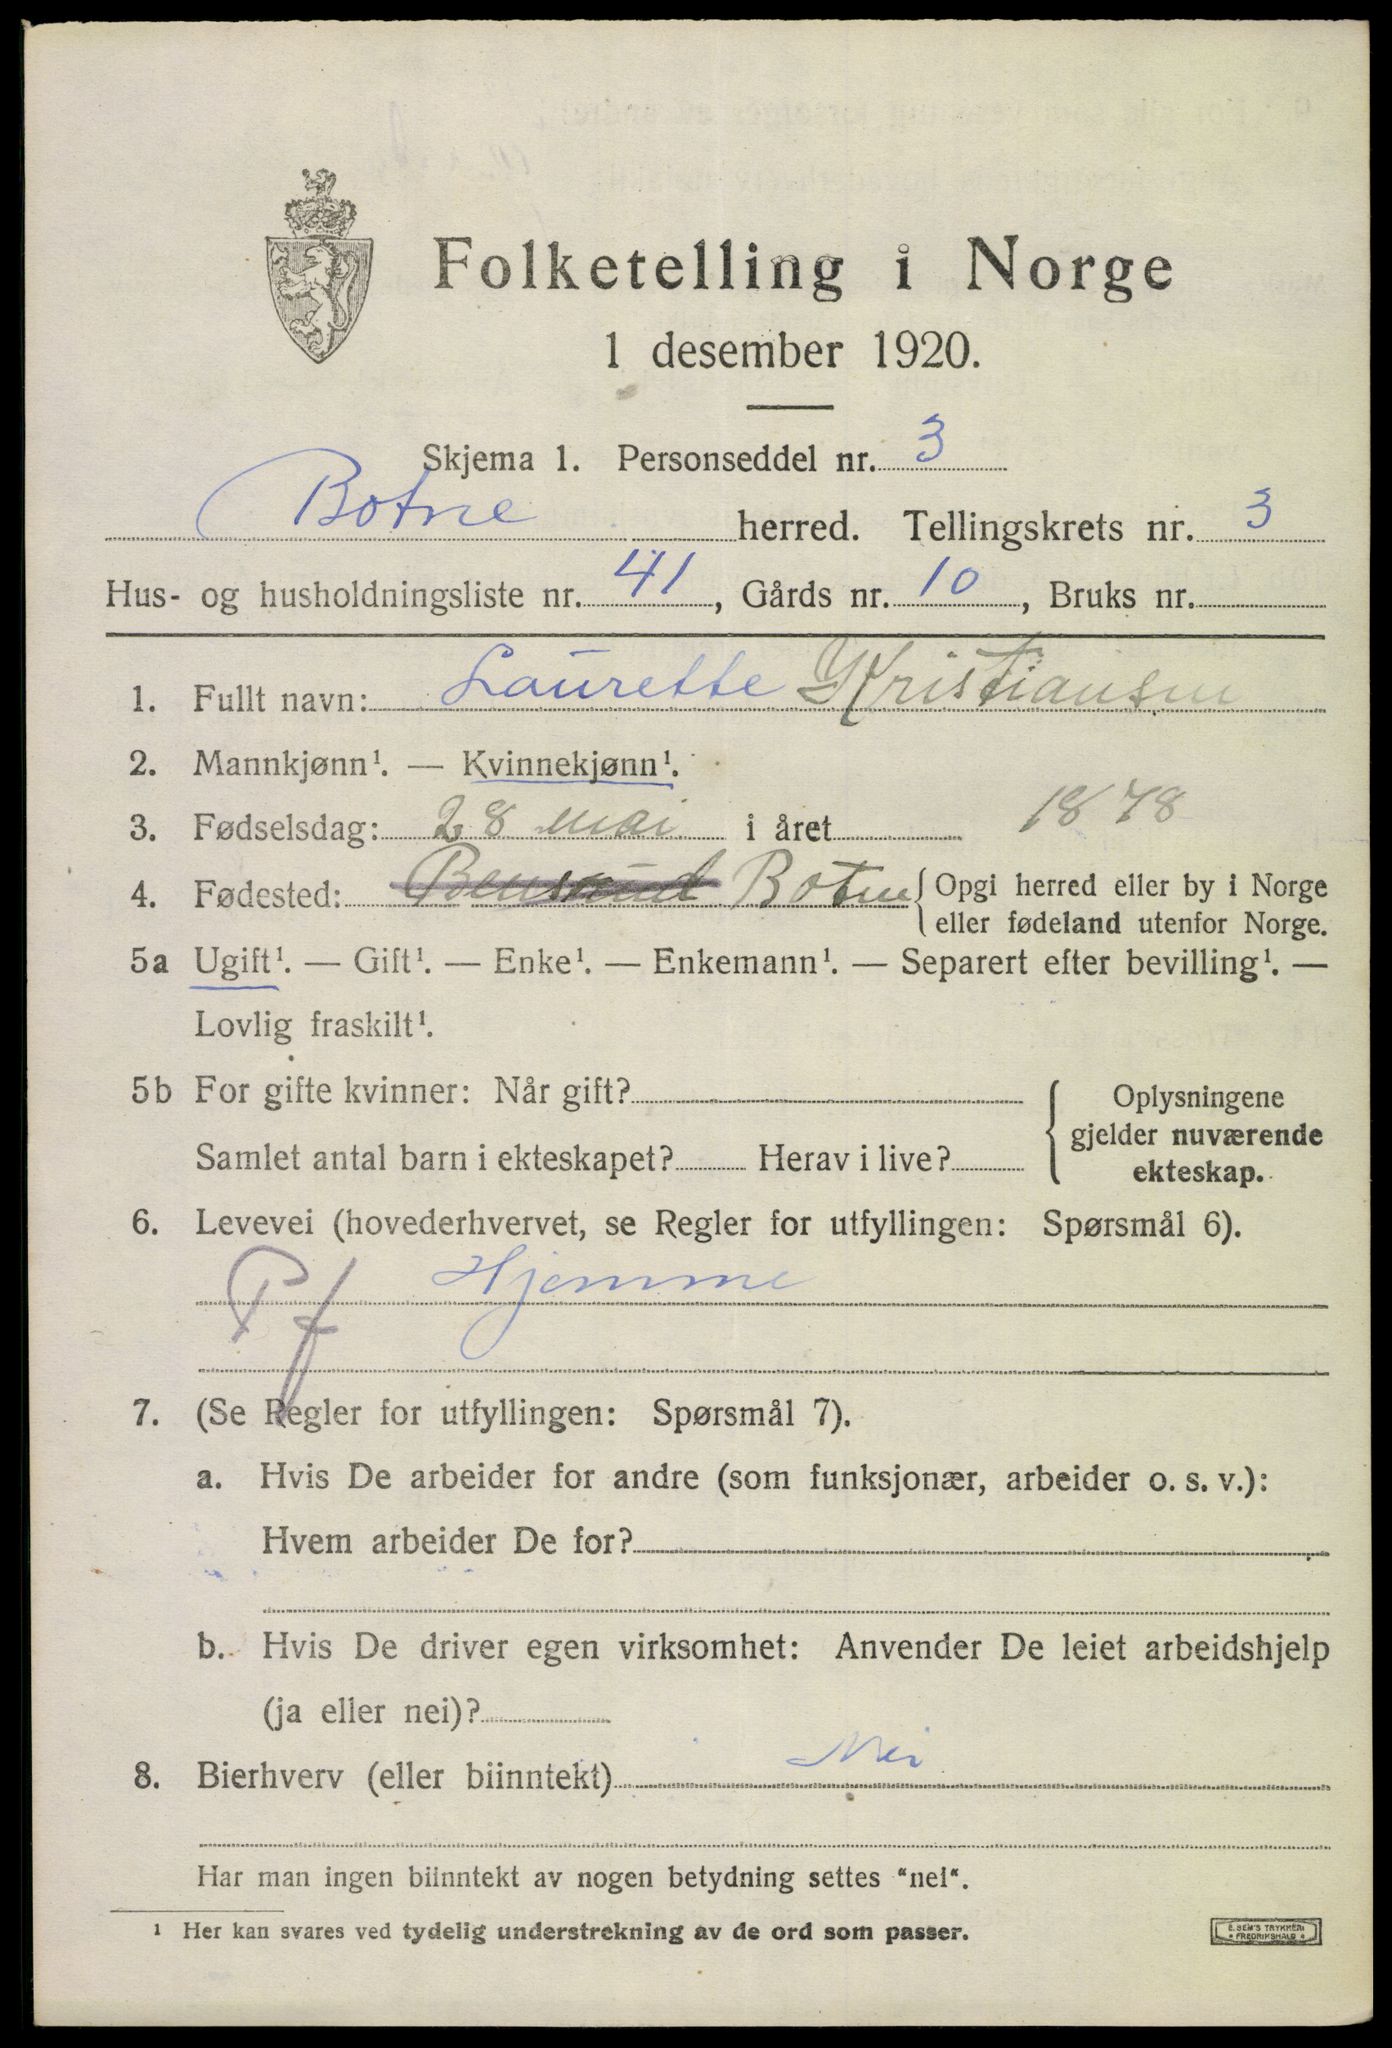 Folketelling i Norge
1 desember 1920.
Skjema 1. Personseddel nr. 3
Botne herred. Tellingskrets nr. 3
Hus- og husholdningsliste nr. 41, Gårds nr. 10, Bruks nr.
1. Fullt navn: Laurette Kristiansen
2. Mannkjønn¹. — Kvinnekjønn¹.
3. Fødselsdag: 28 mai i året 1878
4. Fødested: Botne {Opgi herred eller by i Norge
eller fødeland utenfor Norge.
5a Ugift¹. — Gift¹. — Enke¹. — Enkemann¹. — Separert efter bevilling¹. —
Lovlig fraskilt¹.
5b For gifte kvinner: Når gift?
Samlet antal barn i ekteskapet? Herav i live?
Oplysningene
gjelder nuværende
ekteskap.
6. Levevei (hovederhvervet, se Regler for utfyllingen: Spørsmål 6).
Pf Hjemme
7. (Se Regler for utfyllingen: Spørsmål 7).
a. Hvis De arbeider for andre (som funksjonær, arbeider o. s. v.):
Hvem arbeider De for?
b. Hvis De driver egen virksomhet: Anvender De leiet arbeidshjelp
(ja eller nei)?
8. Bierhverv (eller biinntekt) Nei
Har man ingen biinntekt av nogen betydning settes "nei".
¹ Her kan svares ved tydelig understrekning av de ord som passer.
E. SEM'S TRYKKERI
FREDRIKSHALD